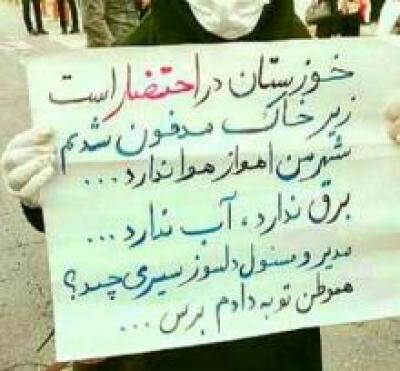 خوزستان در احتضار است
زیر خاک مدفون شدیم
شهر من اهواز هوا ندارد...
برق ندارد، آب ندارد...
مدیر و مسئول دلسوز سیری چند؟
هموطن تو به دادم برس...